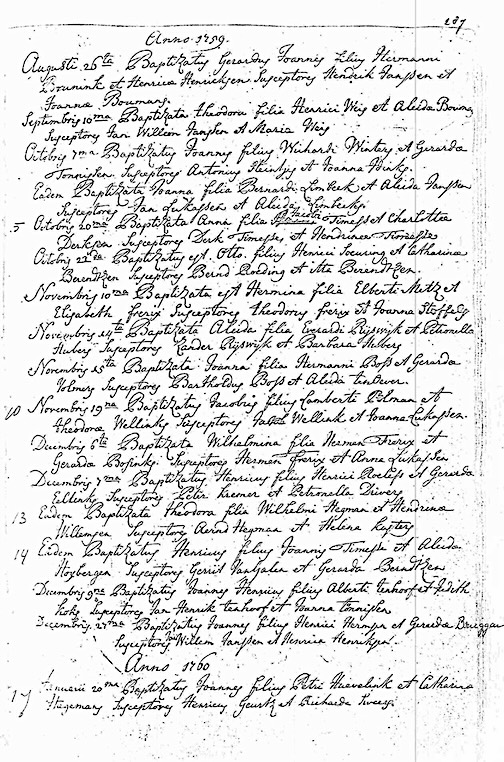 287
Anno 1759.
Augusti 26ta Baptizatus Gerardus Joannis filius Hermanni
et Henrica Hendricksen Susceptores Hendrik Janssen et
Joanna Boumans
Septembris 10ma Baptizata Theodora filia Henrici Weis et Aleida
Susceptores Jan Willem Janssen et Maria Weis
Octobris 7ma Baptizatus Joannis filius Wichardi Winters et Gerarda
Tonnissen Susceptores Antonius et Joanna
Eadem Baptizata Joanna filia Bernardi Limbeek et Aleida Janssen
Susceptores Jan Lukassen et Aleida Limbeeks
5 Octobris 20ma Baptizata Anna filia Jacobi Timesse et Charlottea
Derksen Susceptores Derk Timesse et Hendersina Timesse
Octobris 22da Baptizatus est Otto filius Henrici et Catharina
Berendtzen Susceptores Bernd Roding et Berendtzen
Novembris 10ma Baptizata est Hermina filia Elberti Metz et
Elisabeth frerix Susceptores Theodorus frerix et Joanna
Novembris 14ta Baptizata Aleida filia Everardi Rijswijk et Petronella
Huberz Susceptores Zander Rijswijk et Barbara Hubers
Novembris 15ta Baptizata Joanna filia Hermanni Boss et Gerarda
Volmers Susceptores Bartholdus Boss et Aleida
10 Novembris 19na Baptizatus Jacobus filius Lamberti Polman et
Theodora Wellinks Susceptores Jacob Wellink et Joanna Lukassen.
Decembris 6ta Baptizata Wilhelmina filia Herman Frerix et
Gerarda Bosinks Susceptores Herman frerix et Anna Lukassen
Decembris 7ma Baptizatus Henricus filius Henrici Roelefs et Gerarda
Ellinks Susceptores Peter Kremer et Petronella Drivers
13 Eadem Baptizata Theodora filia Wilhelmi Hegman et Hendrina
Willemsen Susceptores Aernd Hegman et Helena Kusters
14 Eadem Baptizatus Henricus filius Joannis Timesse et Aleida
Hoxbergen Susceptores Gerrit van Galen et Gerarda Berndtzen
Decembris 9na Baptizatus Joannes Henricus filius Alberti tenhoef et Judith
Koks Susceptores Jan Henrik tenhoef et Joanna Tonnissen
Decembris 27ma Baptizatus Joannes filius Henrici Hermsen et Gerarda Bruggen
Susceptores Willem Janssen et Henrica Henriksen.
Anno 1760
17 Januarii 20ma Baptizatus Joannes filius Petri Huevelink et Catharina
Stegemans Susceptores Henricus Geurtz et Richarda